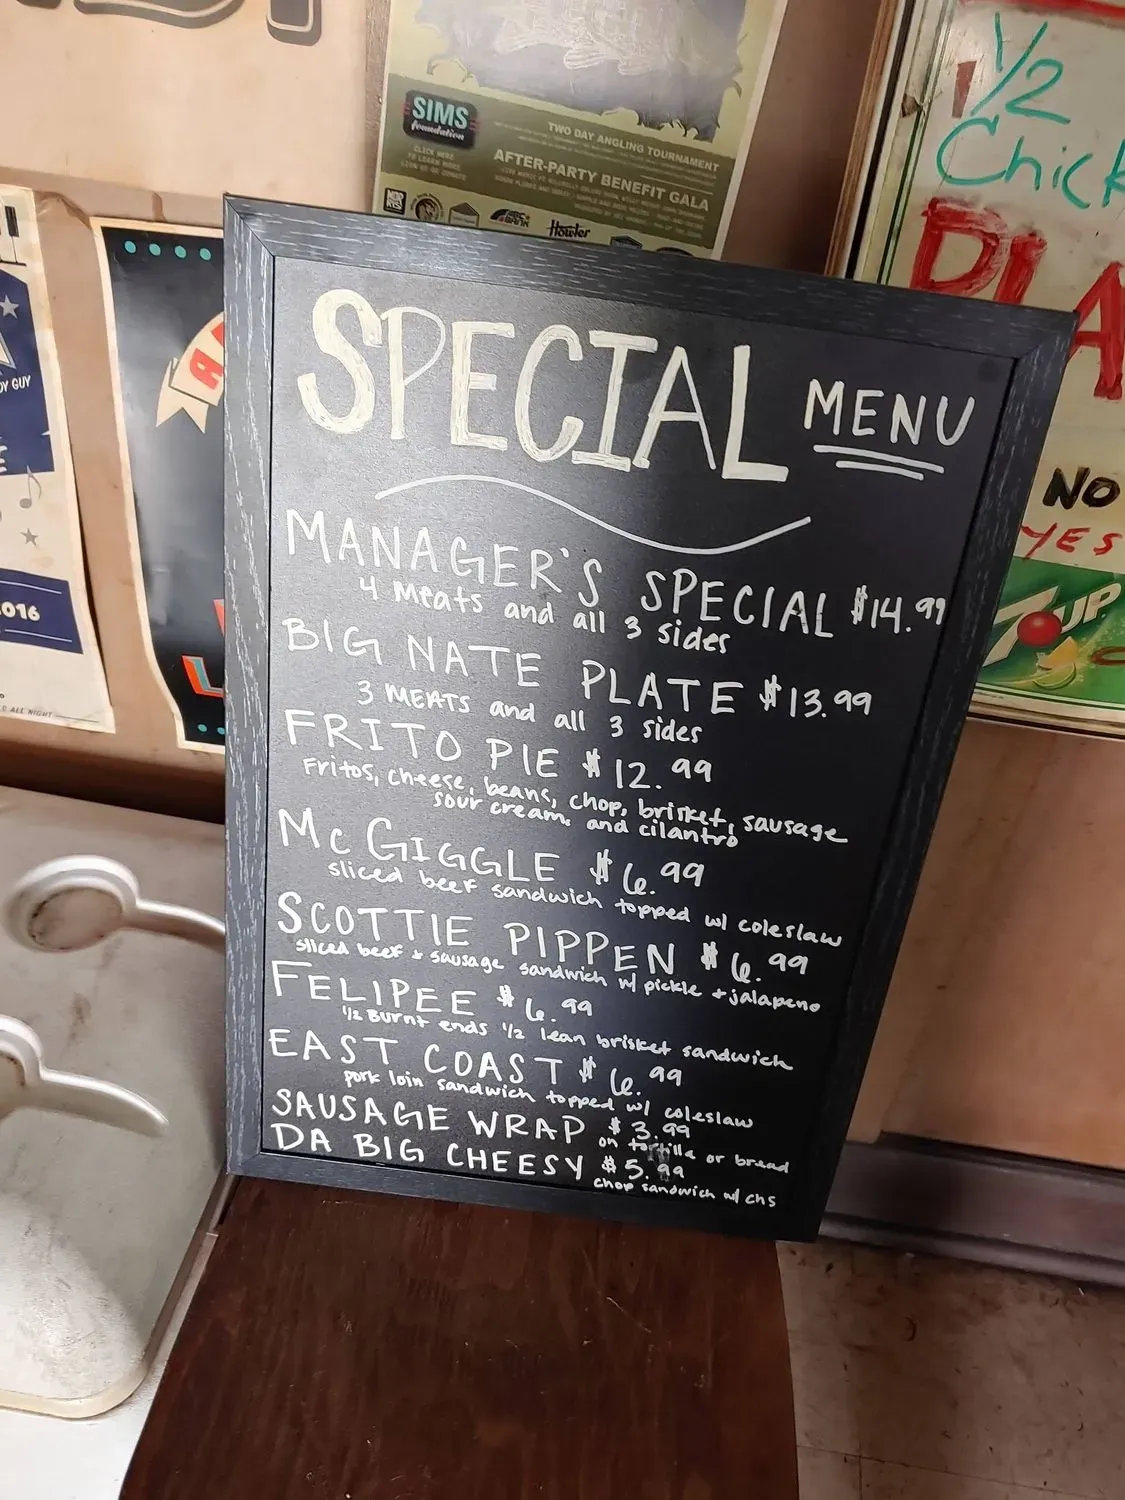 SIMS
foundation
CLICK HERE
TO LEARN MORE
TWO DAY ANGLING TOURNAMENT
AFTER-PARTY BENEFIT GALA
Howler
1/2
Chick
PLA
NO
YES
7UP
OY GUY
2016
ALL NIGHT
SPECIAL MENU
MANAGER'S SPECIAL $14.99
4 Meats and all 3 sides
BIG NATE PLATE $13.99
3 MEATS and all 3 sides
FRITO PIE $12.99
Fritos, cheese, beans, chop, brisket, sausage
sour cream, and cilantro
McGIGGLE $6.99
sliced beef sandwich topped w/ coleslaw
SCOTTIE PIPPEN $6.99
sliced beef + sausage sandwich w/ pickle + jalapeno
FELIPEE $6.99
1/2 Burnt ends 1/2 lean brisket sandwich
EAST COAST $6.99
pork loin sandwich topped w/ coleslaw
SAUSAGE WRAP $3.99
on tortilla or bread
DA BIG CHEESY $5.99
chop sandwich w/ chs